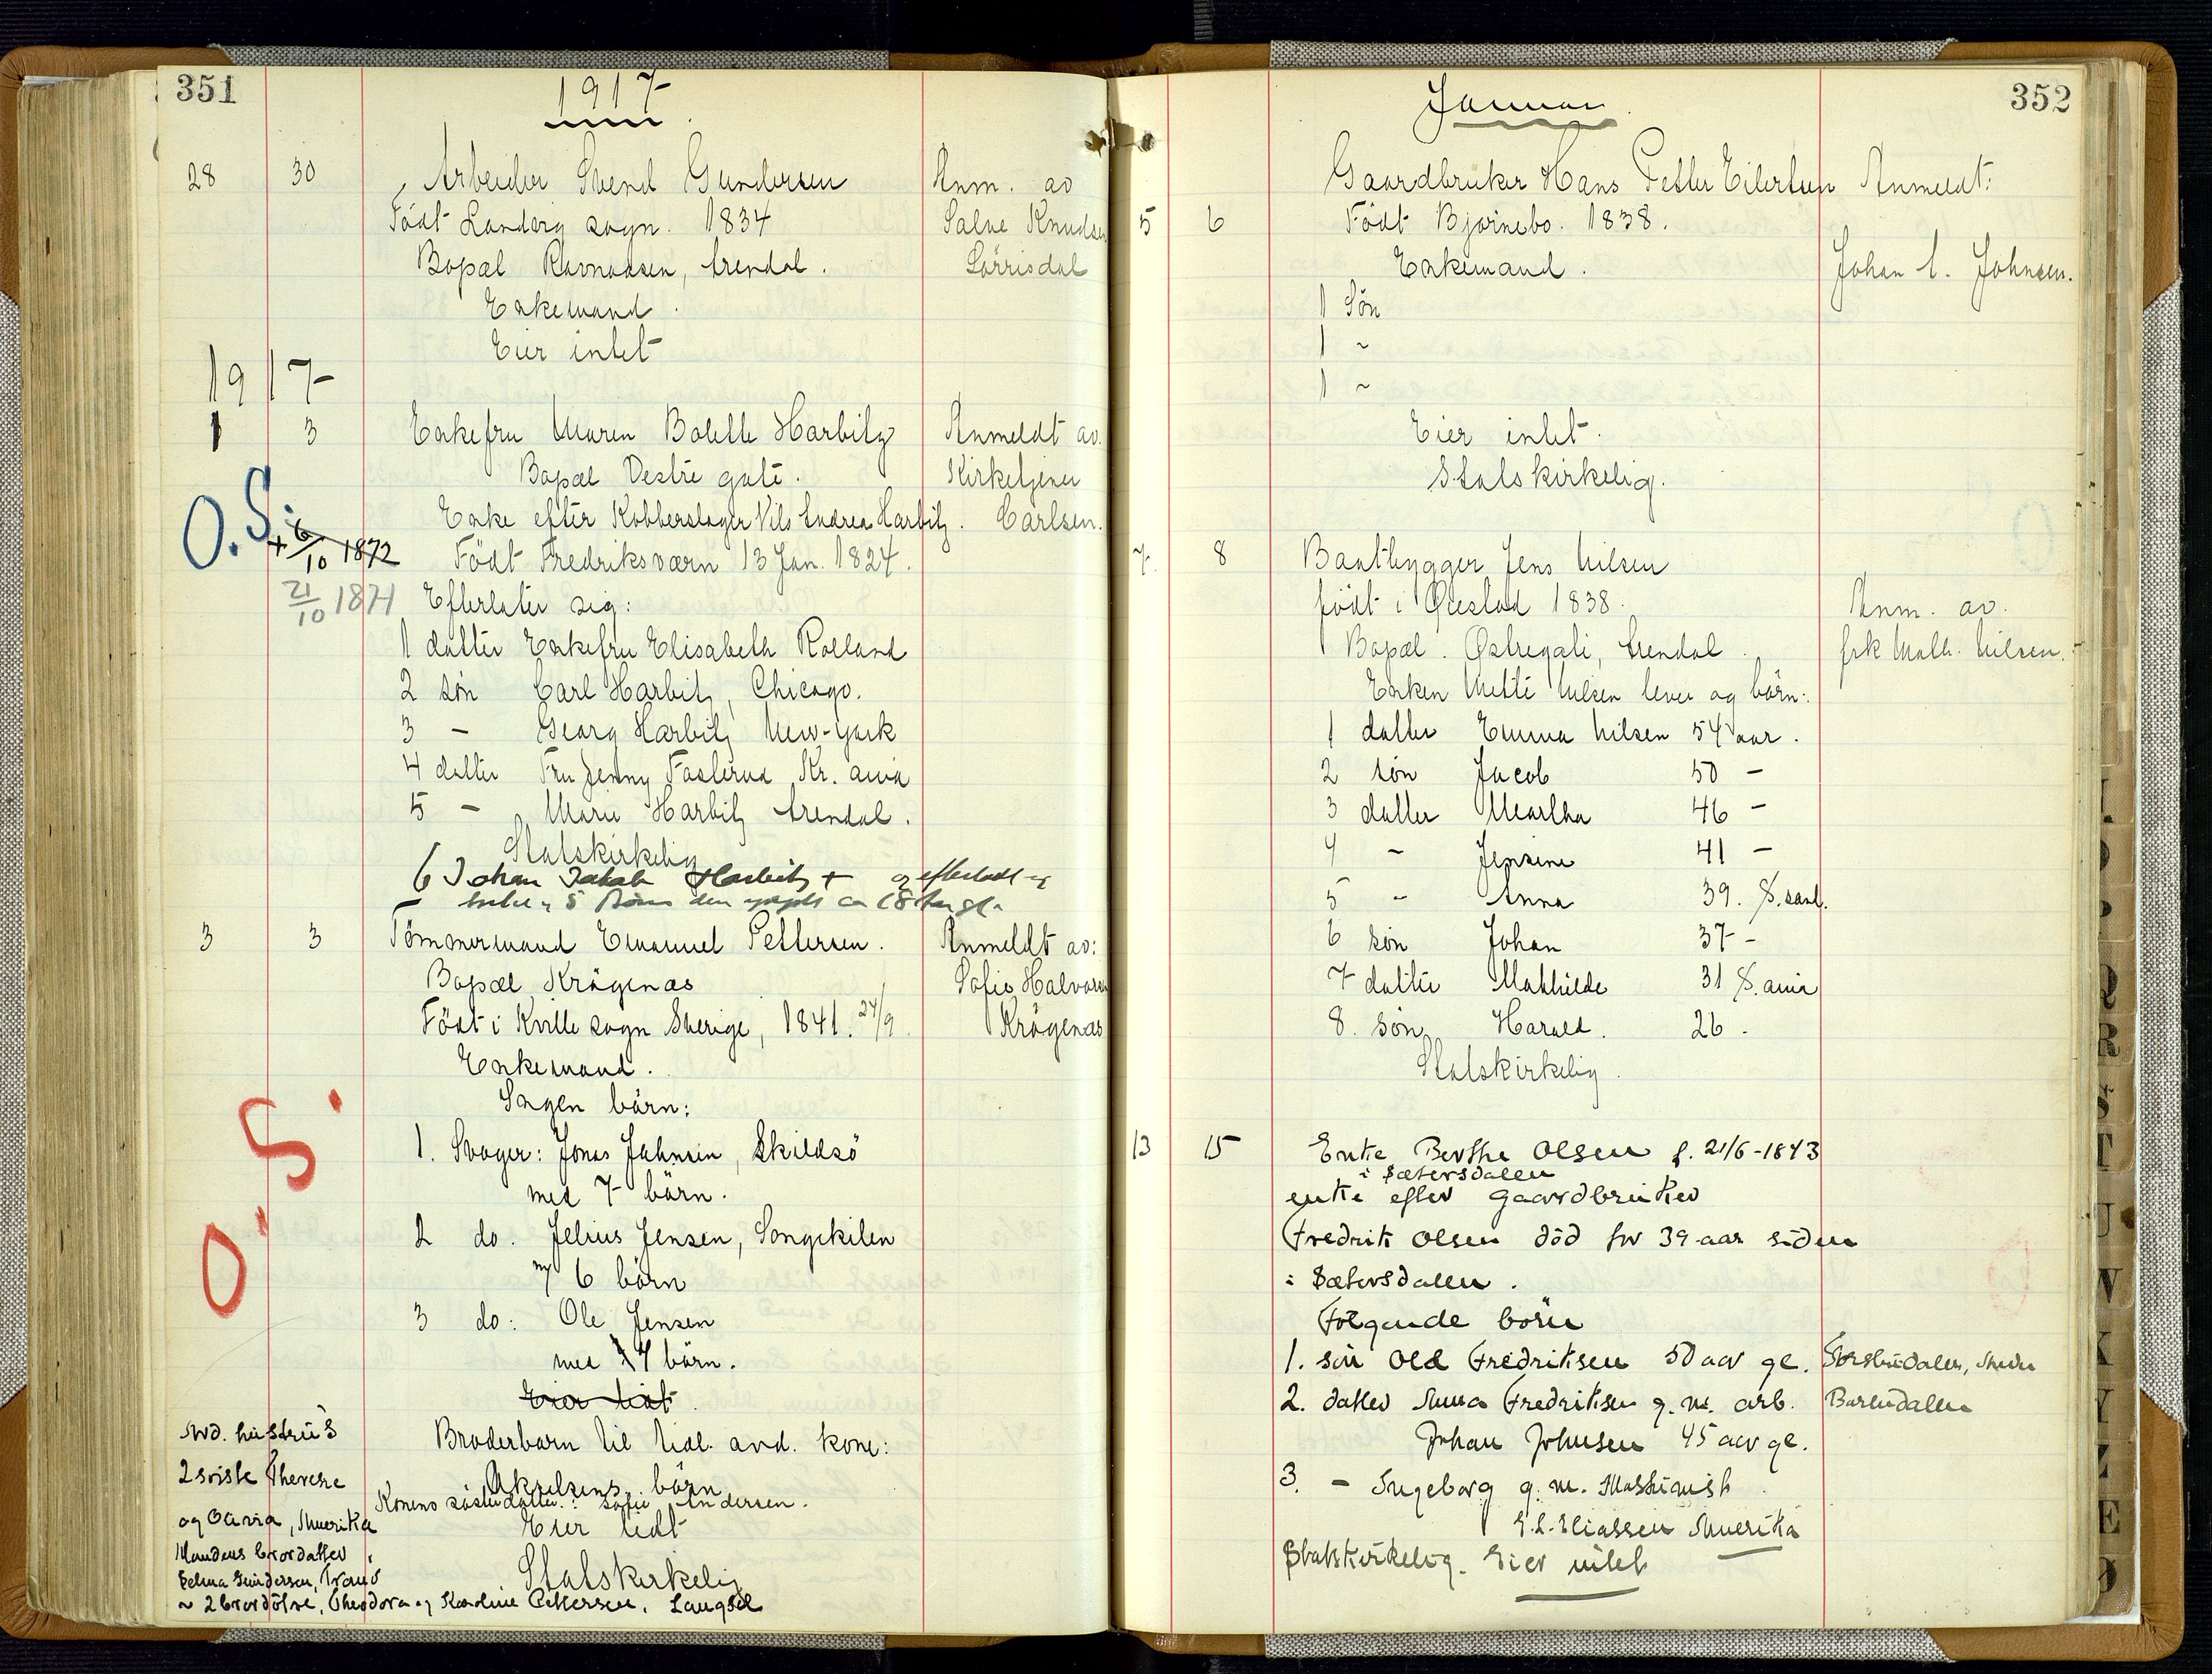 351
1917
28 30 Arbeider Svend Gundersen Anm. av
Födt Landvig sogn. 1834 Salve Knudsen
Bopæl Ravnaasen, Arendal. Lörrisdal
Enkemand.
Eier intet
1917
1 3 Enkefru Maren Bolette Harbitz Anmeldt av.
Bopæl Vestre gate. Kirketjener
Enke efter Kobberslager Nils Andreas Harbitz. Carlsen.
O.S. + 6/10 1872 Födt Fredriksværn 13 Jan. 1824.
21/10 1871 Efterlater sig:
1 datter Enkefru Elisabeth Rolland
2 sön Carl Harbitz, Chicago.
3 - Georg Harbitz New-York
4 datter Fru Jenny Fasterud Kr. ania
5 - Marie Harbitz Arendal.
Statskirkelig
6 Johan Jakob Harbitz + og efterladt sig
5 Börn den yngste ca 18 Aar gl.
3 3 Tömmermand Emanuel Pettersen. Anmeldt av:
Bopæl Krögenæs Sofie Halvorsen
Födt i Kville sogn Sverige, 1841. 24/9. Krögenæs
Enkemand.
Ingen börn:
O.S.
1. Svoger: Jonas Johnsen, Skildsö
med 7 börn.
2 do. Jelius Jensen, Songekilen
m/ 6 börn
3 do: Ole Jensen
med 4 börn.
Eier lidt
Avd. hustru's
2 söstre Therese
og Oavia, Amerika
Mandens brordatter
Selma Gundersen, Tromö
~ 2 brordötre, Theodora og Karoline Pettersen, Langsæ
Broderbarn til tidl. avd. kone:
Akselsens börn
Konens sösterdatter: Sofie Andersen.
Eier lidt
Statskirkelig
352
Januar
Gaardbruker Hans Petter Eilertsen Anmeldt:
5 6 Födt Bjornebo. 1838.
Enkemand. Johan A. Johnsen.
1 Sön
1 ~
1 ~
Eier intet.
Statskirkelig.
7. 8 Baatbygger Jens Nilsen
födt i Øiestad 1838. Anm. av.
Bopæl. Østregate, Arendal. frk Math. Nilsen.
Enken Mette Nilsen lever og börn:
1 datter Emma Nilsen 54 aar.
2 sön Jacob 50 -
3 datter Martha 46 -
4 - Jensine 41 -
5 - Anna 39. S. sand.
6 sön Johan 37 -
7 datter Mathilde 31 K. ania
8. sön Harald. 26.
Statskirkelig.
13 15 Enke Berthe Olsen f. 21/6-1843
i Sætersdalen
enke efter gaardbruker
Fredrik Olsen död for 39 aar siden
i Sætersdalen.
Fölgende börn
1. sön Ole Fredriksen 50 aar gl.
2. datter Anna Fredriksen g. m. arb. Barbudalen
Johan Johnsen 45 aar gl.
3. - Ingeborg g. m. Maskinist
E. L. Eliassen Amerika
Statskirkelig. Eier intet